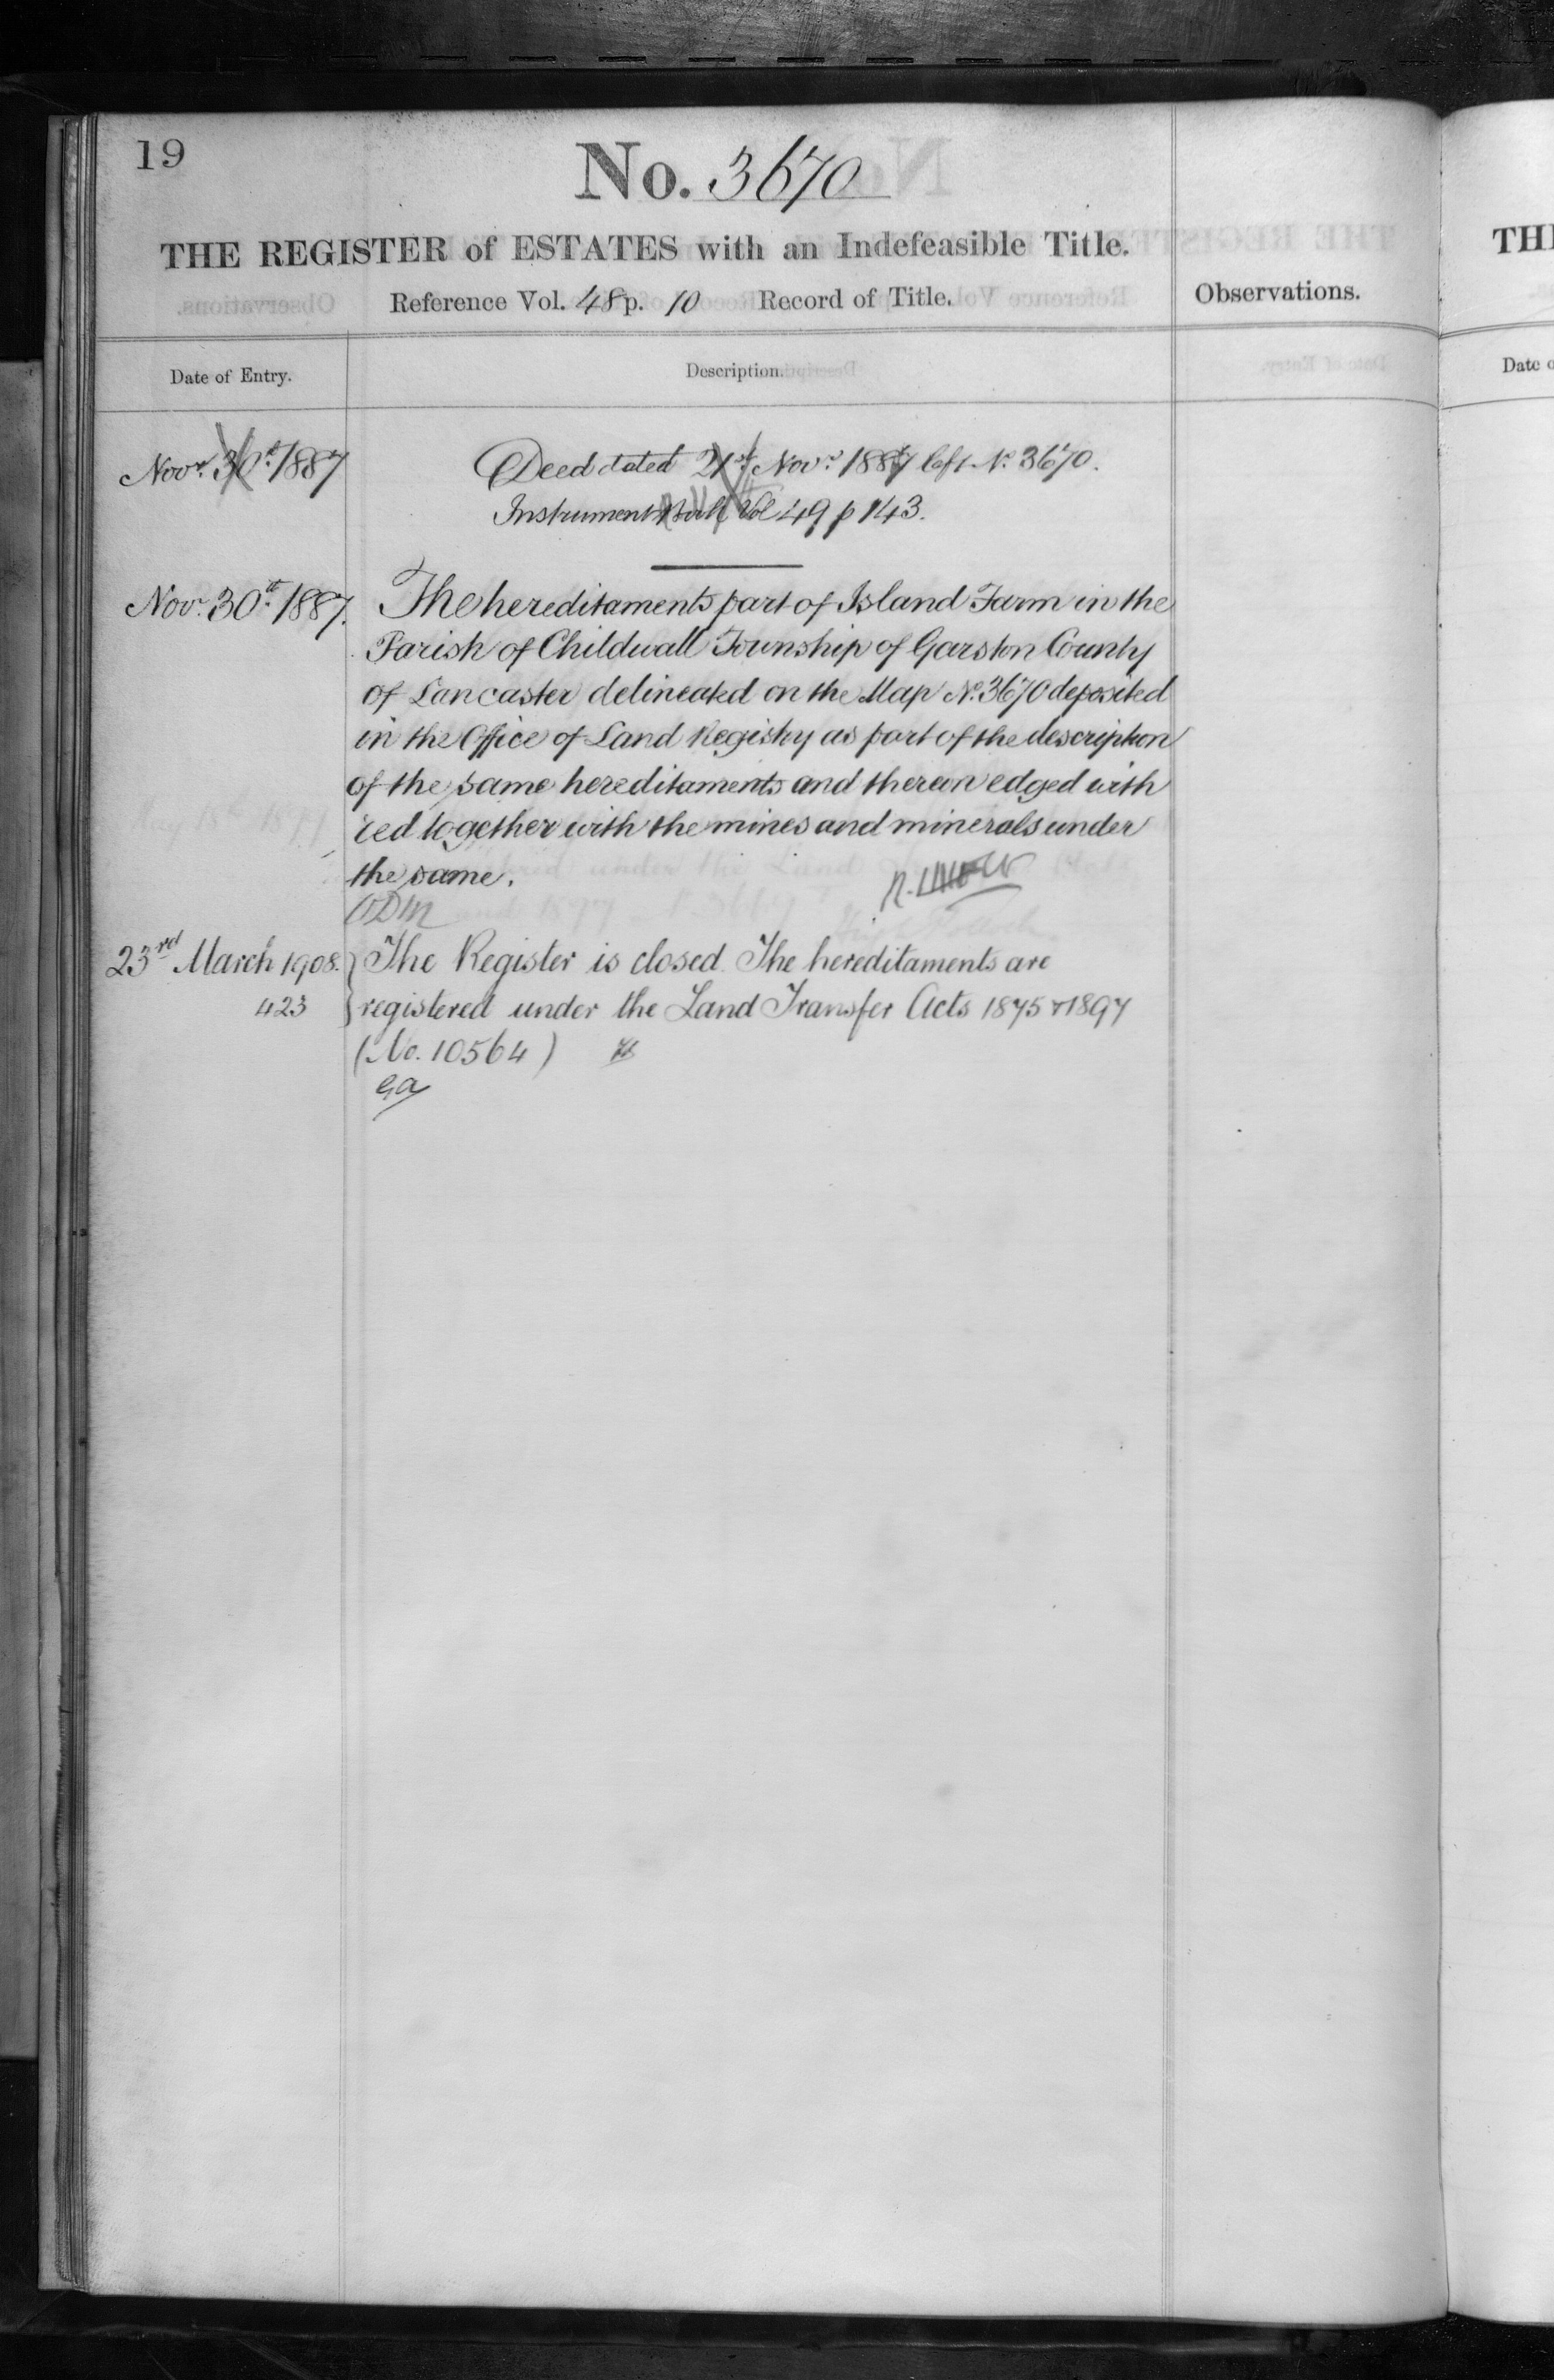 19
No. 3670
THE REGISTER of ESTATES with an Indefeasible Title.
Reference Vol. 48 p. 10 Record of Title.
Observations.
Date of Entry.
Description.
Novr. 30th. 1887
Deed dated 21st Novr. 1887 left No. 3670.
Instrument Book Vol 49 p 143.
Novr. 30th. 1887.
The hereditaments part of Island Farm in the
Parish of Childwall Township of Garston County
of Lancaster delineated on the Map No. 3670 deposited
in the Office of Land Registry as part of the description
of the same hereditaments and thereon edged with
red together with the mines and minerals under
the same.
23rd March 1908.
The Register is closed. The hereditaments are
423
registered under the Land Transfer Acts 1875 & 1897
(No. 10564)
TH
Date o